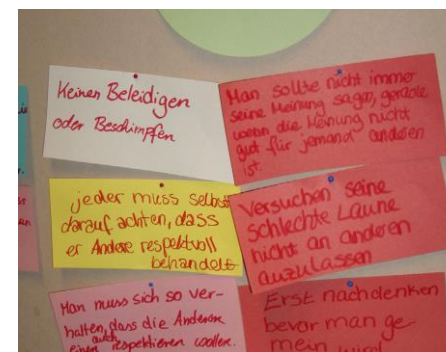 Keinen Beleidigen
oder Beschimpfen
Man sollte nicht immer
seine Meinung sagen, gerade
wenn die Meinung nicht
gut für jemand anderen
ist.
jeder muss selbst
darauf achten, dass
er Andere respektvoll
behandelt
Versuchen seine
schlechte Laune
nicht an anderen
auzulassen
Man muss sich so ver-
halten, dass die Anderen
einen auch respektieren wollen.
Erst nachdenken
bevor man ge
mein wird